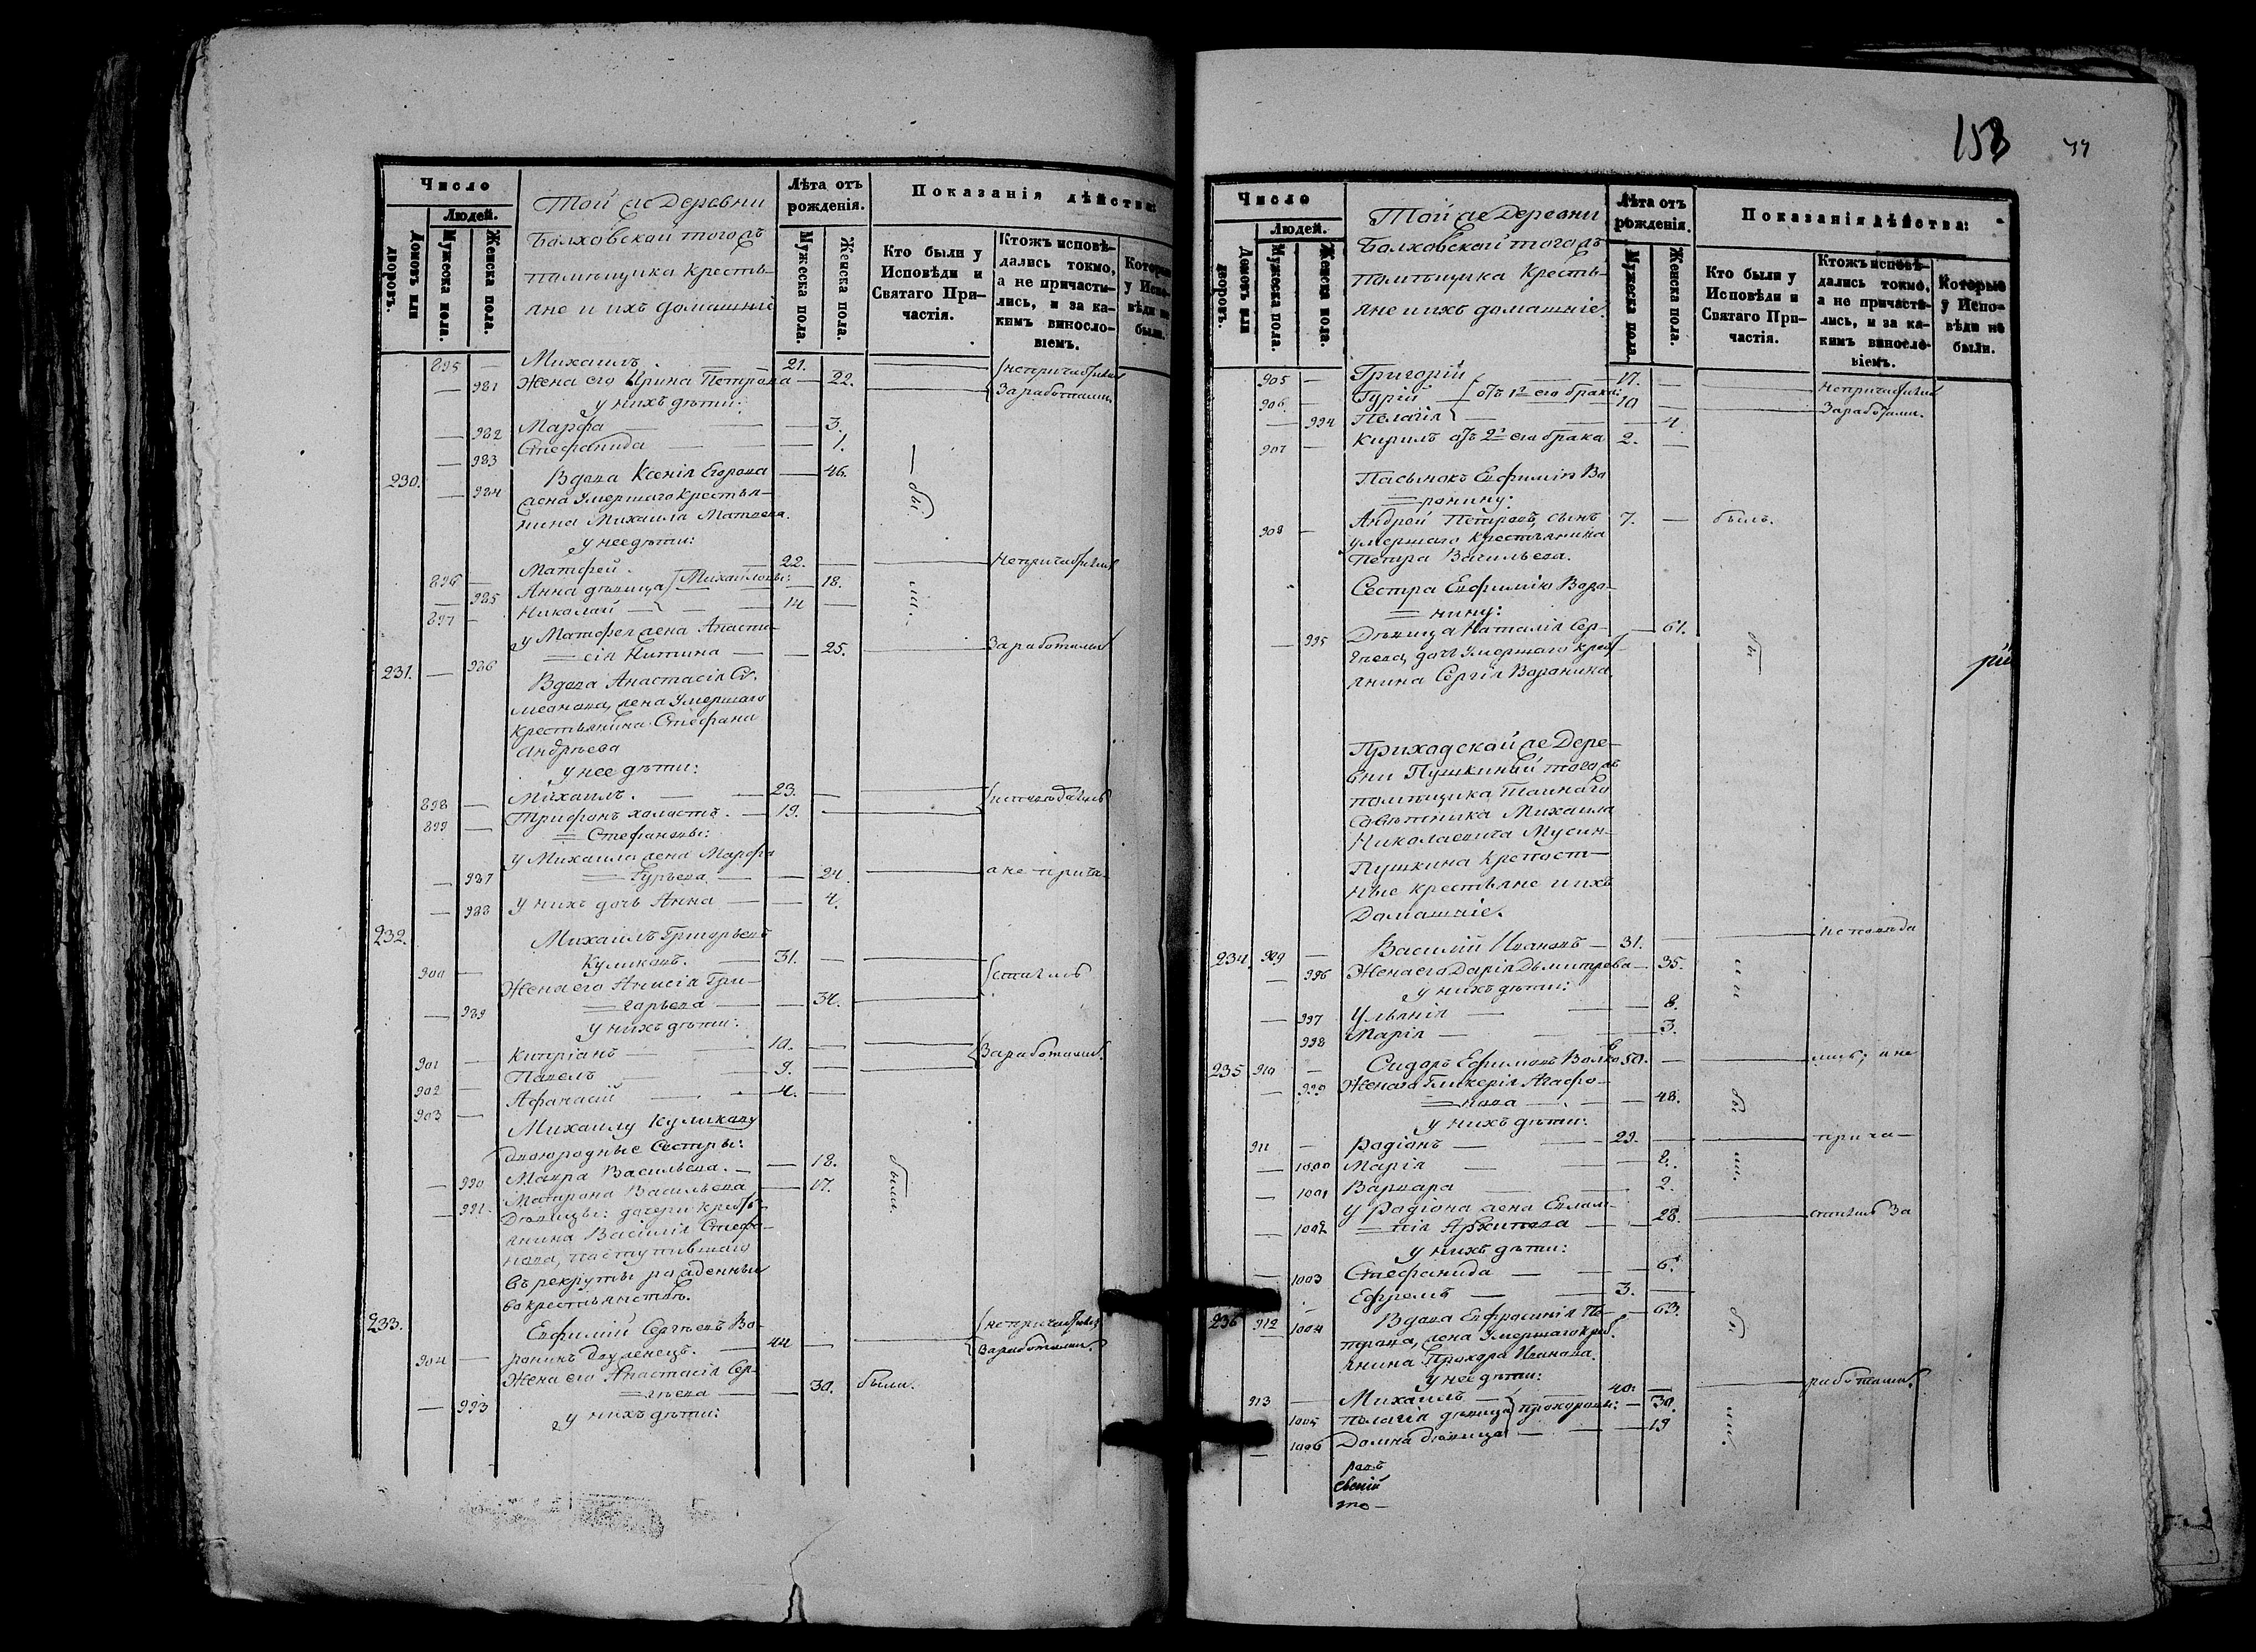 Число
Людей.
Домовъ или дворовъ.
Мужеска пола.
Женска пола.
Той же Деревни
Болховской тогожъ
помѣщика Кресть-
яне и ихъ домашніе
Лѣта отъ рожденія.
Мужеска пола.
Женска пола.
Показанія дѣйства:
Кто были у Исповѣди и Святаго При-частія.
Ктожъ исповѣ-дались токмо, а не причасти-лись, и за ка-кимъ виносло-віемъ.
895 — Михаилъ. — 21.
— 981 Жена его Ирина Петрова — 22. Заработами
у нихъ дѣти:
— 982 Марфа — 3.
— 983 Стефанида — 1.
230. — 984 Вдова Ксенія Егорова — 46. — бы
жена Умершаго Крестья-
нина Михаила Матвеева.
у нее дѣти:
896 — Матфей. 22.
— 985 Анна дѣвица Михайловы: — 18. ли.
897 — Николай — 14 —
у Матфея жена Анаста-
— 986 сія Никитина — 25. Заработами
231. — Вдова Анастасія Си-
меонова, жена Умершаго
Крестьянина Стефана
Андрѣева
у нее дѣти:
898 — Михаилъ. — 23. —
899 — Трифонъ холостъ. — 19. —
Стефановы:
у Михаила жена Марфа
— 987 Гурьева — 24. а не прича-
— 988 у нихъ дочь Анна — 4.
232. Михаилъ Григорьевъ
900 — Куликовъ. — 31. —
Жена его Анисія Гри-
— 989 горьева — 34.
у нихъ дѣти:
901 — Кипріанъ — 10. — Заработами.
902 — Павелъ — 9. —
903 — Афанасій — 4. —
Михаилу Куликову
двоюродные Сестры:
— 990 Мавра Васильева. — 18. были.
— 991 Матрона Васильева — 17.
Дѣвицы: дочери крест-
янина Василія Стефа-
нова, поступившаго
въ рекруты рожденныя
во крестьянствѣ.
233. Евфимій Сергѣевъ Во-
904 — ронинъ двуженецъ. — 44 — Заработами.
Жена его Анастасія Сер-
— 993 гѣева — 30. были.
у нихъ дѣти:
153
Число
Людей.
Домовъ или дворовъ.
Мужеска пола.
Женска пола.
Той же Деревни
Болховской тогожъ
помѣщика Кресть-
яне и ихъ домашніе.
Лѣта отъ рожденія.
Мужеска пола.
Женска пола.
Показанія дѣйства:
Кто были у Исповѣди и Святаго При-частія.
Ктожъ исповѣ-дались токмо, а не причасти-лись, и за ка-кимъ виносло-віемъ.
Которые у Испо-вѣди не были.
905 — Григорій 17. —
906 — Гурій отъ 1го его брака: 10 — Заработами.
— 994 Пелагія — 4.
907 — Кирилъ отъ 2го его брака 2. —
Пасынокъ Евфимію Во
ронину:
908 — Андрей Петровъ, сынъ 7. — былъ.
умершаго Крестьянина
Петра Васильева.
Сестра Евфимію Воро-
нину:
— 995 Дѣвица Наталія Сер- — 61. бы
гѣева, дочь Умершаго Крест-
янина Сергія Воронина.
Приходской же Дере-
вни Пушкиной тогожъ
помѣщика Тайнаго
Совѣтника Михаила
Николаевича Мусин-
Пушкина Крѣпост-
ные крестьяне и ихъ
Домашніе.
234. 909 Василій Ивановъ — 31. — исповѣда
— 996 Жена его Дарія Дьмитрева — 35.
у нихъ дѣти:
— 997 Ульянія — 8.
— 998 Марія — 3.
235 910 — Сидоръ Ефимовъ Волковъ 50. — лись, а не
— 999 Жена его Гликерія Агафо-
нова — 48. бы
у нихъ дѣти:
911 — Родіонъ — 29. — прича-
— 1000 Марія — 8. ли.
— 1001 Варвара — 2.
у Родіона жена Евлам-
— 1002 пія Архипова — 28. стились За
у нихъ дѣти:
— 1003 Стефанида — 6.
— Ефремъ — 3. —
236 912 1004 Вдова Евфросинія Пе- — 63. бы
трова, жена Умершаго Крест-
янина Прохора Иванова.
у неё дѣти:
913 — Михаилъ — 40. — работами.
1005 Пелагія дѣвица прохоровы: — 30.
— 1006 Домна дѣвица — 19 ли.